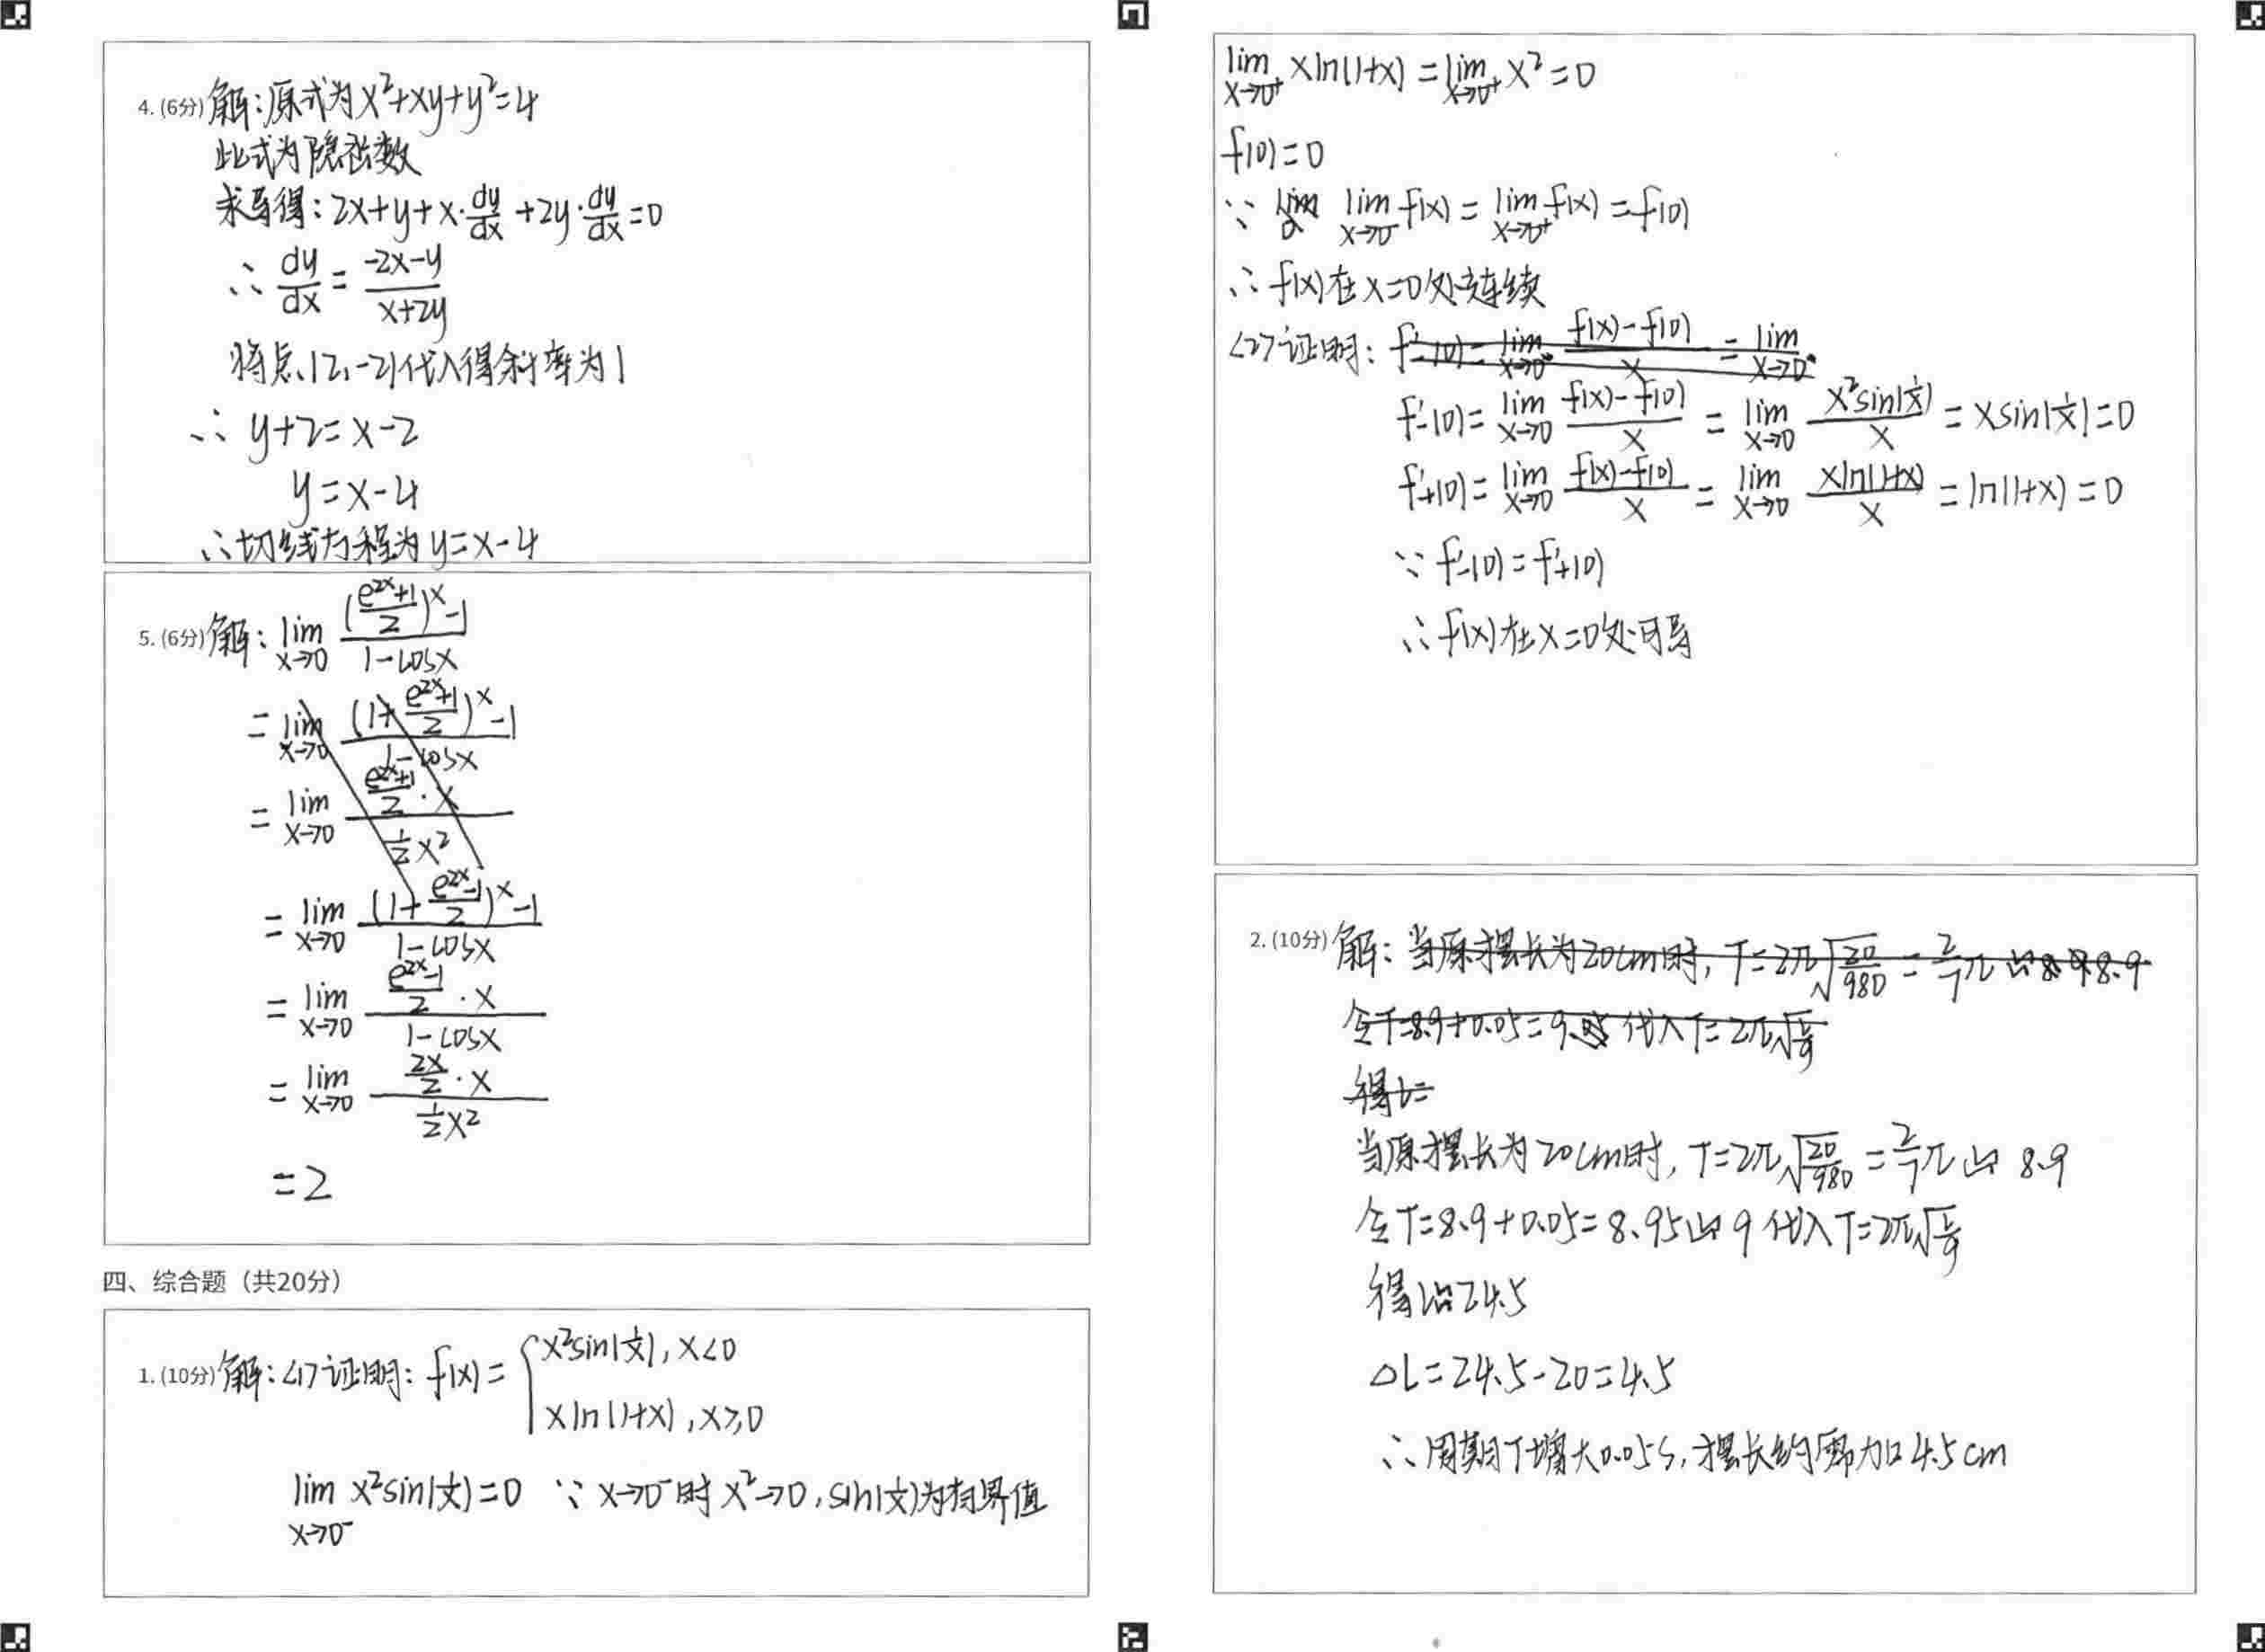 4. (6分) 解:原式为x²+xy+y²=4
此式为隐函数
求导得: 2x+y+x·dy/dx+2y·dy/dx=0
∴ dy/dx = (-2x-y)/(x+2y)
将点(2,-2)代入得斜率为1
∴ y+2=x-2
y=x-4
∴切线方程为y=x-4
5. (6分) 解: lim x→0 (((e^2x+1)/2)^x-1)/(1-cosx)
= lim x→0 ((1+(e^2x+1)/2)^x-1)/(1-cosx)
= lim x→0 ((e^2x+1)/2·x)/(1/2x²)
= lim x→0 ((1+(e^2x-1)/2)^x-1)/(1-cosx)
= lim x→0 ((e^2x-1)/2·x)/(1-cosx)
= lim x→0 (2x/2·x)/(1/2x²)
=2
四、综合题（共20分）
1. (10分) 解:<1>证明: f(x)= { x²sin(1/x), x<0
xln(1+x), x≥0
lim x→0⁻ x²sin(1/x)=0 ∵ x→0⁻时x²→0, sin(1/x)为有界值
lim x→0⁺ xln(1+x) = lim x→0⁺ x² =0
f(0)=0
∵ lim x→0⁻ f(x) = lim x→0⁺ f(x) =f(0)
∴ f(x)在x=0处连续
<2>证明: f'-(0)= lim x→0⁻ (f(x)-f(0))/x = lim x→0⁻
f'-(0)= lim x→0 (f(x)-f(0))/x = lim x→0 x²sin(1/x)/x = xsin(1/x)=0
f'+(0)= lim x→0 (f(x)-f(0))/x = lim x→0 xln(1+x)/x = ln(1+x) =0
∵ f'-(0)=f'+(0)
∴ f(x)在x=0处可导
2. (10分) 解: 当原摆长为20cm时, T=2π√(20/980) = 2/7π ≈ 8.9
令T=8.9+0.05=9 代入T=2π√(L/g)
得L=
当原摆长为20cm时, T=2π√(20/980) = 2/7π ≈ 8.9
令T=8.9+0.05=8.95≈9 代入T=2π√(L/g)
得L≈24.5
△L=24.5-20=4.5
∴周期T增大0.05s, 摆长约需加4.5cm